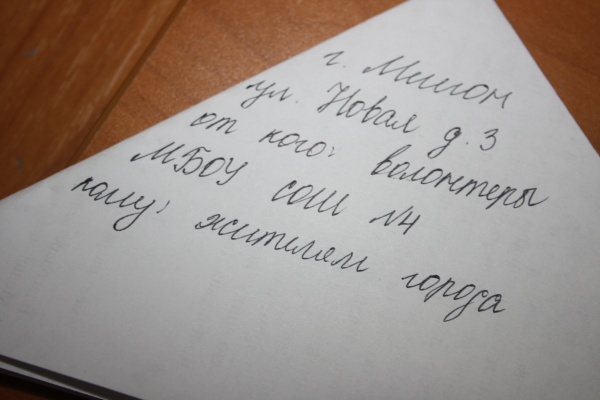 г. Мысон
ул. Новая д. 3
от кого: волонтеры
МБОУ СОШ №4
кому: жителям города